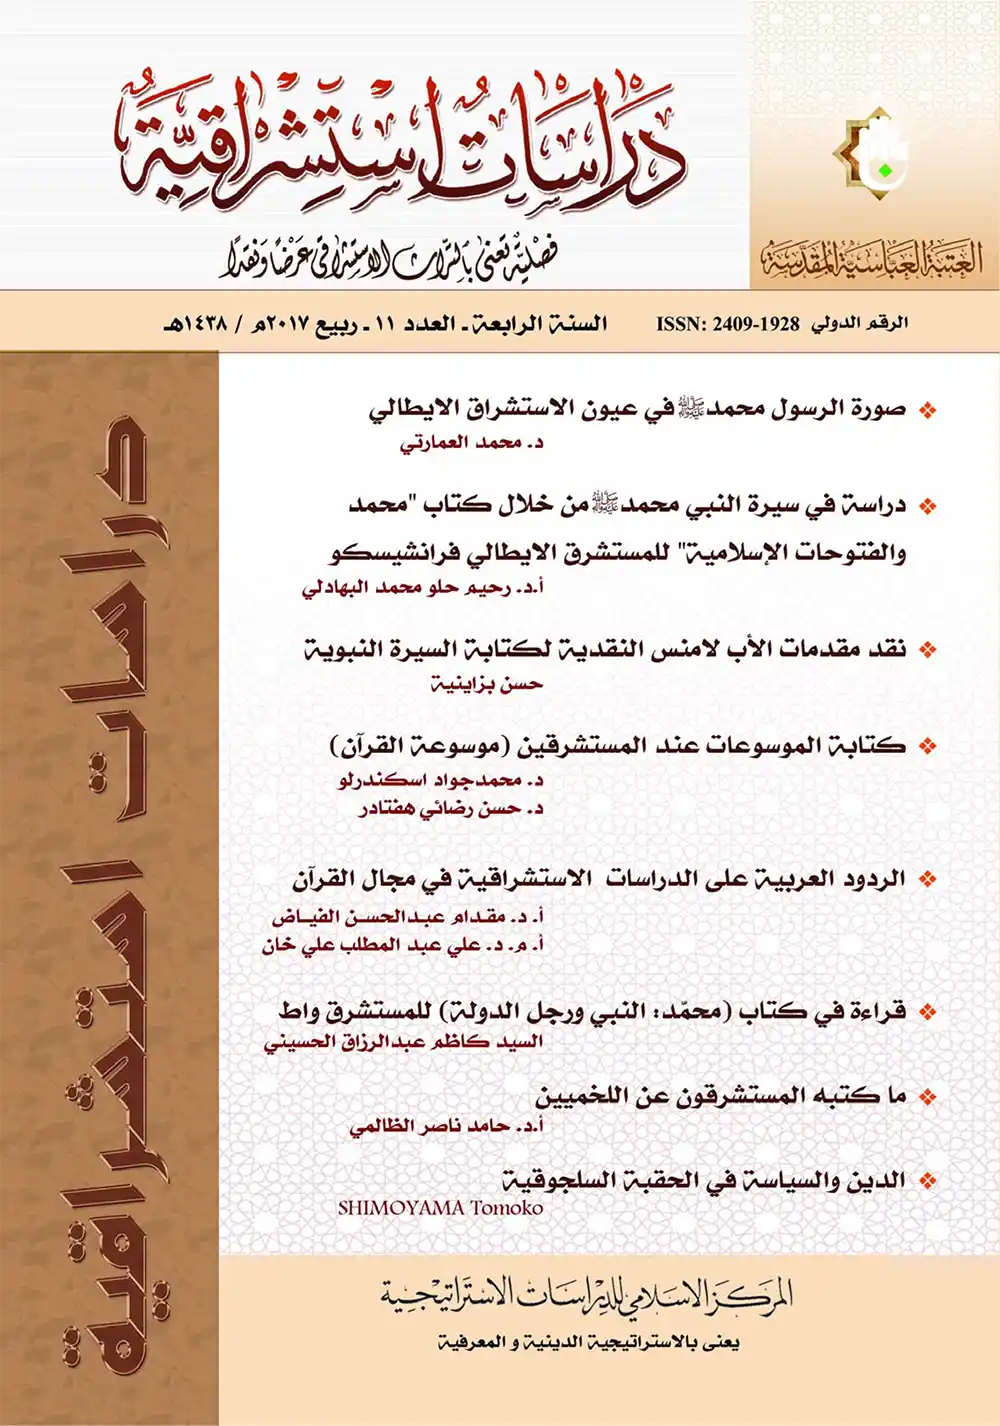 دِرَاسَاتٌ اسْتِشْرَاقِيَّةٌ
فصليّة تعنى بالتراث الاستشراقي عَرْضًا وَنقدًا
العتبة العباسية المقدسة
الرقم الدولي ISSN: 2409-1928
السنة الرابعة ـ العدد ١١ ـ ربيع ٢٠١٧م / ١٤٣٨هـ
صورة الرسول محمد ﷺ في عيون الاستشراق الايطالي
د. محمد العمارتي
دراسة في سيرة النبي محمد ﷺ من خلال كتاب "محمد
والفتوحات الإسلامية" للمستشرق الايطالي فرانشيسكو
أ.د. رحيم حلو محمد البهادلي
نقد مقدمات الأب لامنس النقدية لكتابة السيرة النبوية
حسن بزاينية
كتابة الموسوعات عند المستشرقين (موسوعة القرآن)
د. محمدجواد اسكندرلو
د. حسن رضائي هفتادر
الردود العربية على الدراسات الاستشراقية في مجال القرآن
أ. د. مقدام عبدالحسن الفياض
أ. م. د. علي عبد المطلب علي خان
قراءة في كتاب (محمّد: النبي ورجل الدولة) للمستشرق واط
السيد كاظم عبدالرزاق الحسيني
ما كتبه المستشرقون عن اللخميين
أ.د. حامد ناصر الظالمي
الدين والسياسة في الحقبة السلجوقية
SHIMOYAMA Tomoko
المركز الاسلامي للدراسات الاستراتيجية
يعنى بالاستراتيجية الدينية و المعرفية
دراسات استشراقية